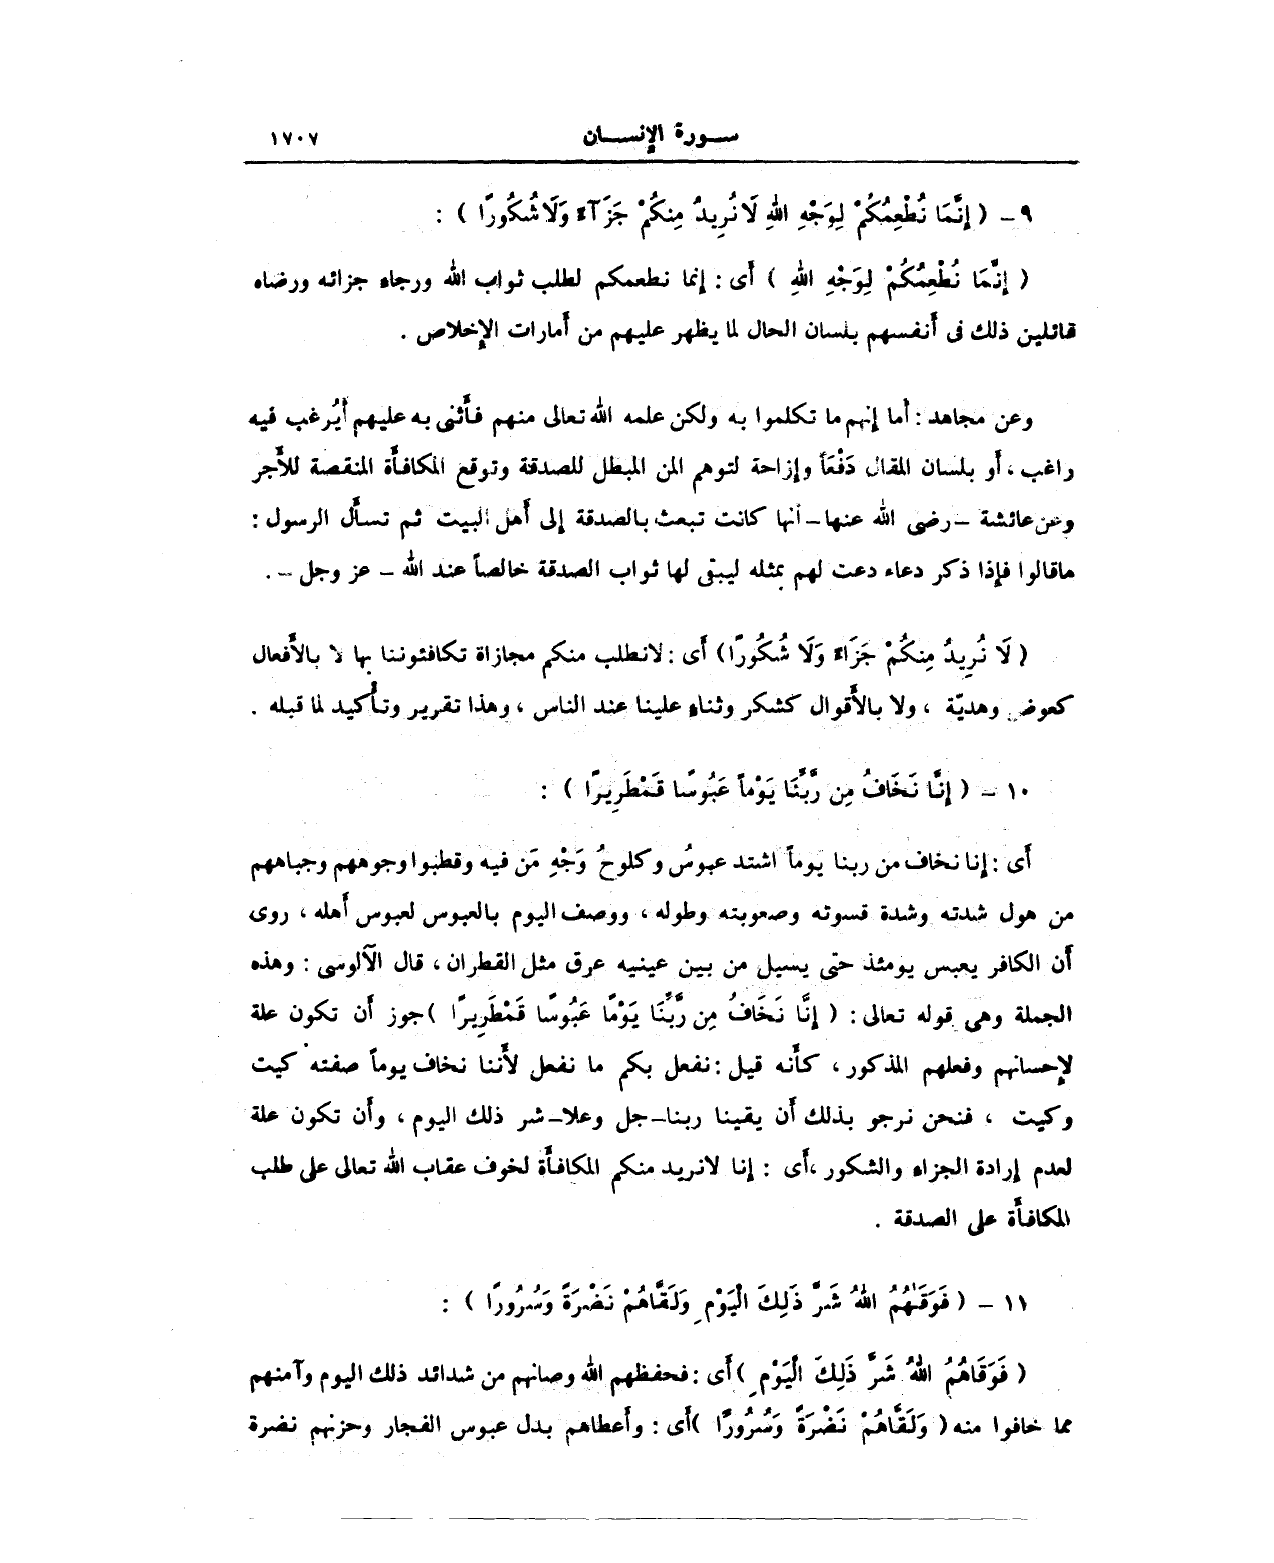 سورة الإنسان ١٧٠٧
٩ - ( إِنَّمَا نُطْعِمُكُمْ لِوَجْهِ اللهِ لَا نُرِيدُ مِنكُمْ جَزَآءً وَلَا شُكُورًا ) :
( إِنَّمَا نُطْعِمُكُمْ لِوَجْهِ اللهِ ) أَى : إنما نطعمكم لطلب ثواب الله ورجاء جزائه ورضاه
قائلين ذلك فى أنفسهم بلسان الحال لما يظهر عليهم من أمارات الإخلاص .
وعن مجاهد : أما إنهم ما تكلموا به ولكن علمه الله تعالى منهم فأَثنى به عليهم أيُرغب فيه
راغب ، أو بلسان المقال دَفْعًا وإزاحة لتوهم المن المبطل للصدقة وتوقع المكافأة المنقصة للأَجر
وعن عائشة - رضى الله عنها - أنها كانت تبعث بالصدقة إلى أهل البيت ثم تسأَل الرسول :
ماقالوا فإذا ذكر دعاء دعت لهم بمثله ليبقى لها ثواب الصدقة خالصاً عند الله - عز وجل - .
( لَا نُرِيدُ مِنكُمْ جَزَاءً وَلَا شُكُورًا ) أَى : لانطلب منكم مجازاة تكافئوننا بها لا بالأَفعال
كعوض وهديّة ، ولا بالأَقوال كشكر وثناءٍ علينا عند الناس ، وهذا تقرير وتأكيد لما قبله .
١٠ - ( إِنَّا نَخَافُ مِن رَّبِّنَا يَوْماً عَبُوسًا قَمْطَرِيرًا ) :
أَى : إنا نخاف من ربنا يوماً اشتد عبوسُ وكلوحُ وَجْهِ مَن فيه وقطبوا وجوههم وجباههم
من هول شدته وشدة قسوته وصعوبته وطوله ، ووصف اليوم بالعبوس لعبوس أهله ، روى
أن الكافر يعبس يومئذ حتى يسيل من بين عينيه عرق مثل القطران ، قال الآلوسى : وهذه
الجملة وهى قوله تعالى : ( إِنَّا نَخَافُ مِن رَّبِّنَا يَوْمًا عَبُوسًا قَمْطَرِيرًا ) جوز أن تكون علة
لإحسانهم وفعلهم المذكور ، كأَنه قيل : نفعل بكم ما نفعل لأَننا نخاف يوماً صفته كيت
وكيت ، فنحن نرجو بذلك أن يقينا ربنا - جل وعلا - شر ذلك اليوم ، وأن تكون علة
لعدم إرادة الجزاء والشكور ، أَى : إنا لانريد منكم المكافأَة لخوف عقاب الله تعالى على طلب
المكافأَة على الصدقة .
١١ - ( فَوَقَـٰهُمُ اللهُ شَرَّ ذَلِكَ الْيَوْمِ وَلَقَّاهُمْ نَضْرَةً وَسُرُورًا ) :
( فَوَقَاهُمُ اللهُ شَرَّ ذَلِكَ الْيَوْمِ ) أَى : فحفظهم الله وصانهم من شدائد ذلك اليوم وآمنهم
مما خافوا منه ( وَلَقَّاهُمْ نَضْرَةً وَسُرُورًا ) أَى : وأعطاهم بدل عبوس الفجار وحزنهم نضرة